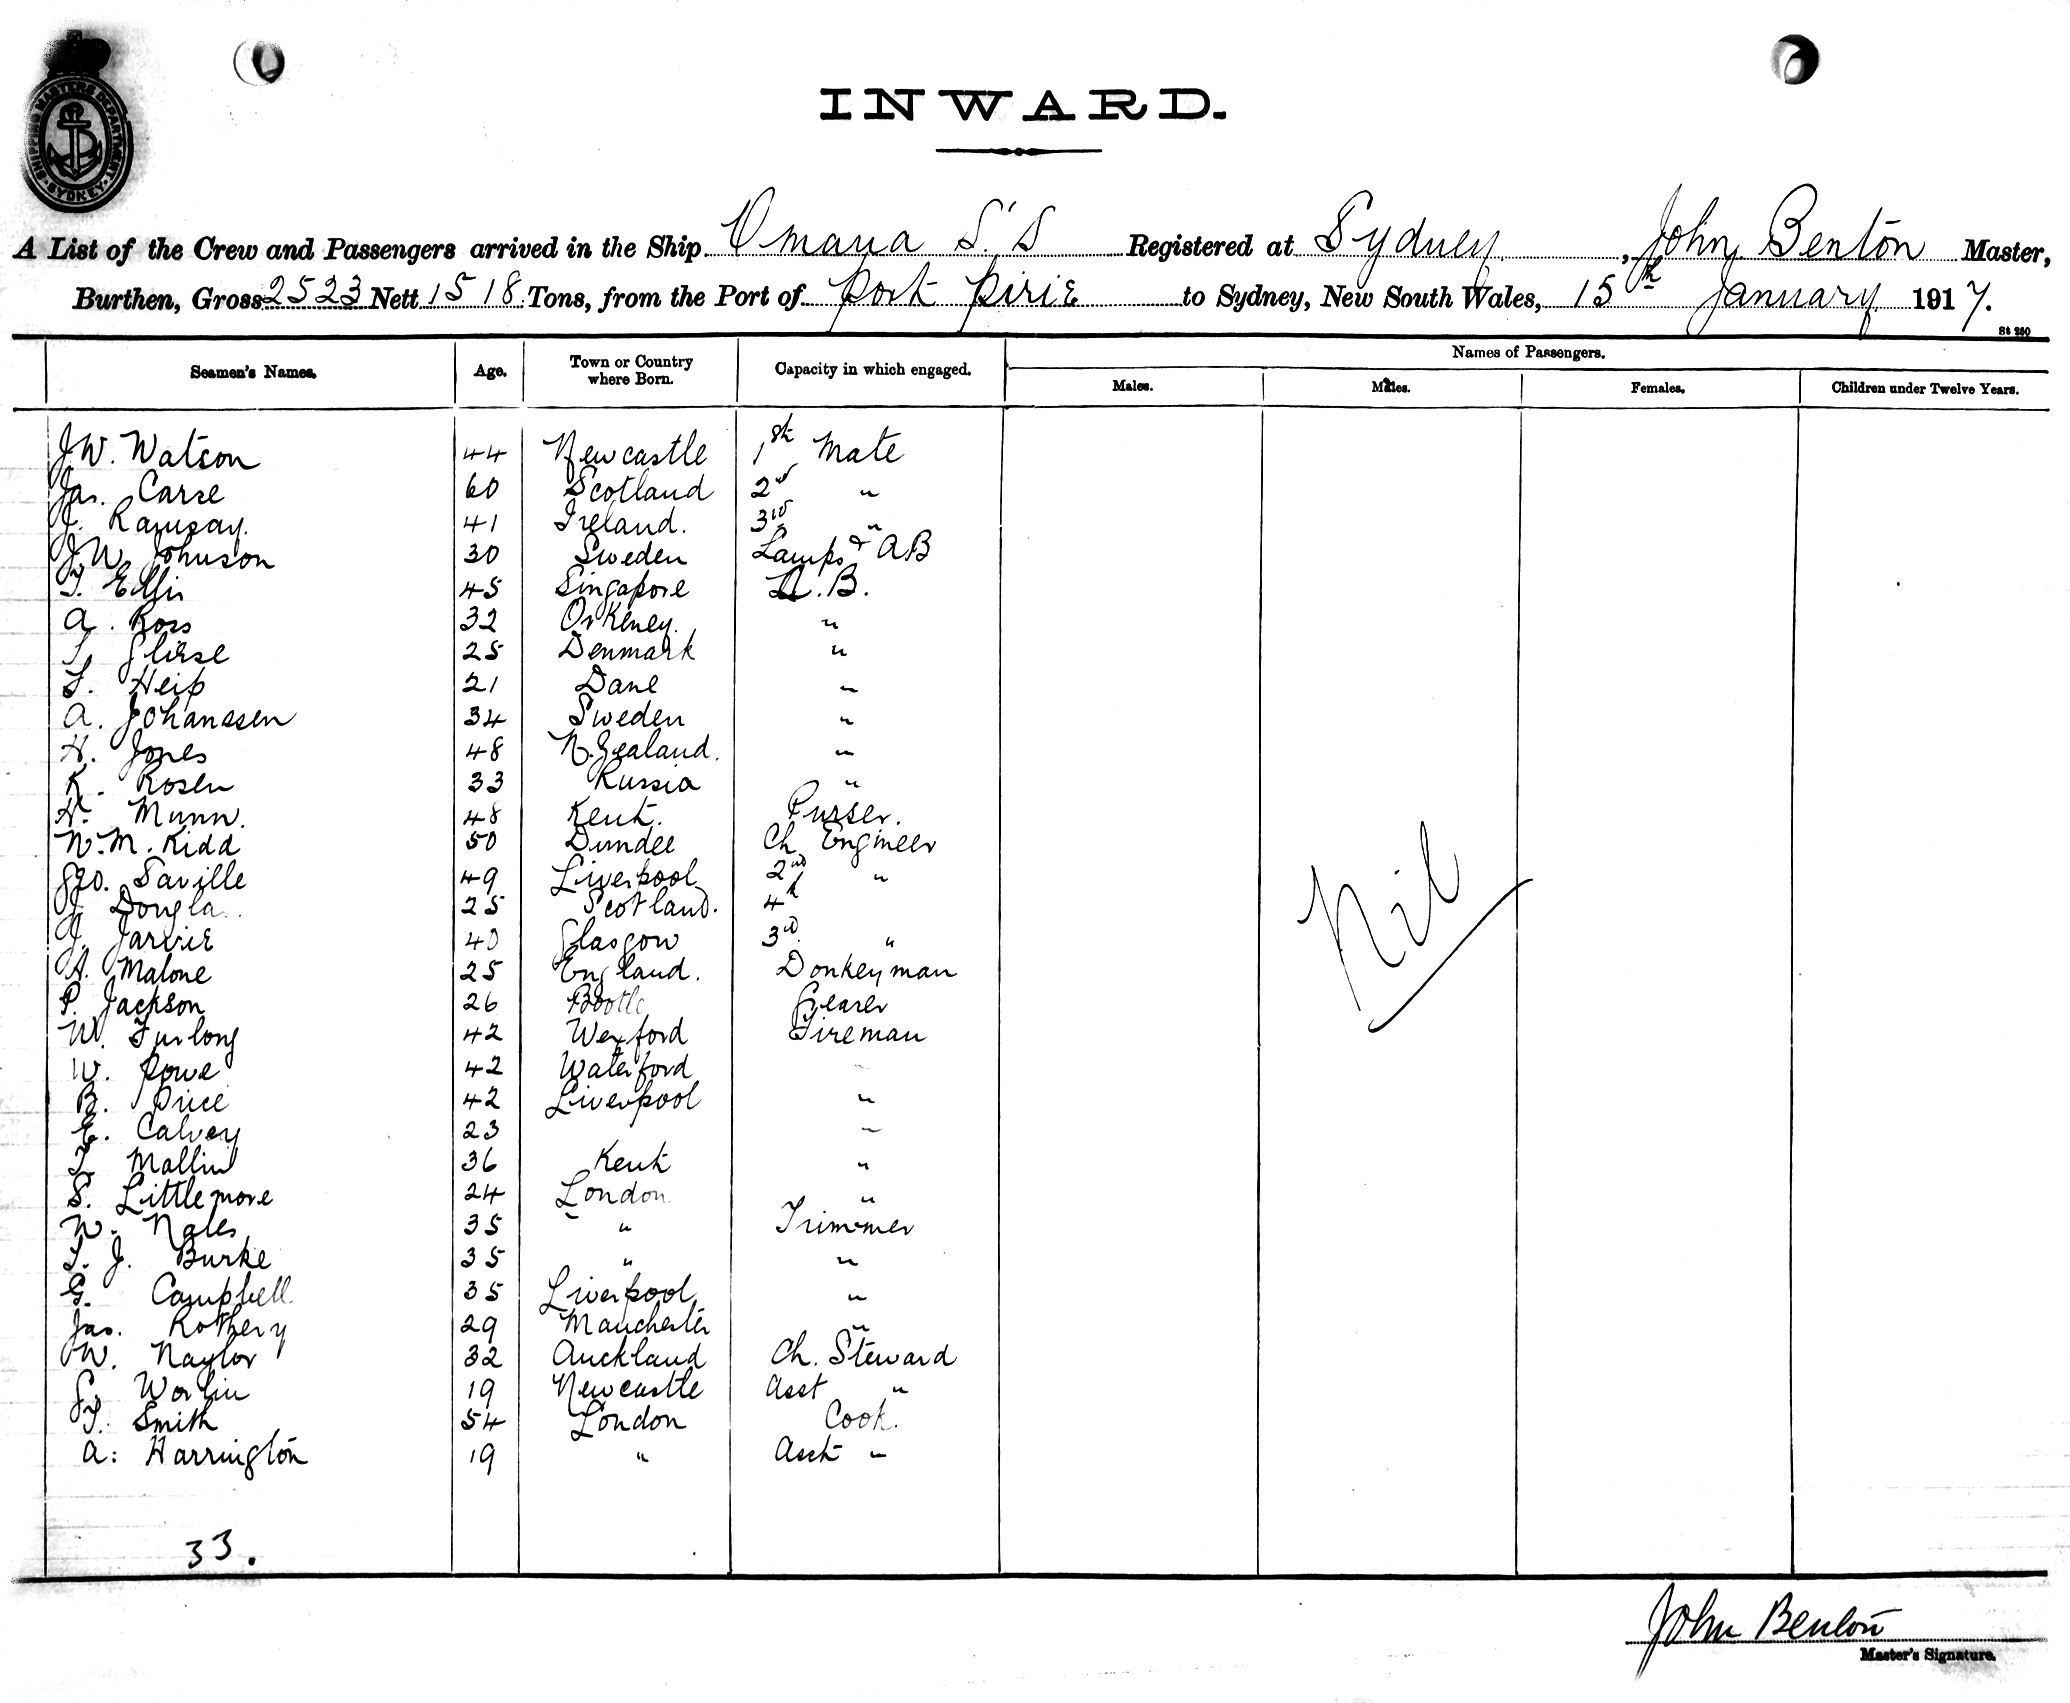 SHIPPING MASTERS DEPARTMENT SYDNEY
INWARD.
A List of the Crew and Passengers arrived in the Ship Omana S.S Registered at Sydney, John Benton Master,
Burthen, Gross 2523 Nett 1518 Tons, from the Port of Port Pirie to Sydney, New South Wales, 15th January 1917.
St 250
Seamen's Names. Age. Town or Country where Born. Capacity in which engaged. Names of Passengers.
Males. Males. Females. Children under Twelve Years.
J.W. Watson 44 Newcastle 1st Mate
Jas. Carse 60 Scotland 2nd "
J. Ramsay. 41 Ireland. 3rd "
J.W. Johnson 30 Sweden Lamps & AB
T. Ellis 45 Singapore A.B.
A. Ross 32 Orkeney. "
Gliese 25 Denmark "
Heip 21 Dane "
A. Johanssen 34 Sweden "
H. Jones 48 N. Zealand. "
K. Rosen 33 Russia "
H. Munn. 48 Kent. Purser.
W.M. Kidd 50 Dundee Ch Engineer
Geo. Saville 49 Liverpool 2nd "
J. Dougla.. 25 Scotland. 4th
J. Jarvie 40 Glasgow 3rd "
A. Malone 25 England. Donkeyman
P. Jackson 26 Bootle Gearer
W. Furlong 42 Wexford Fireman
W. Powe 42 Waterford
B. Price 42 Liverpool "
E. Calvey 23 "
T. Mallin 36 Kent "
S. Littlemore 24 London "
W. Nales 35 " Trimmer
T. J. Burke 35 " "
G. Campbell 35 Liverpool "
Jas. Rothery 29 Manchester "
W. Naylor 32 Auckland Ch. Steward
Worlin 19 Newcastle Asst "
T. Smith 54 London Cook.
A. Harrington 19 " Asst "
Nil
33.
John Benton
Master's Signature.